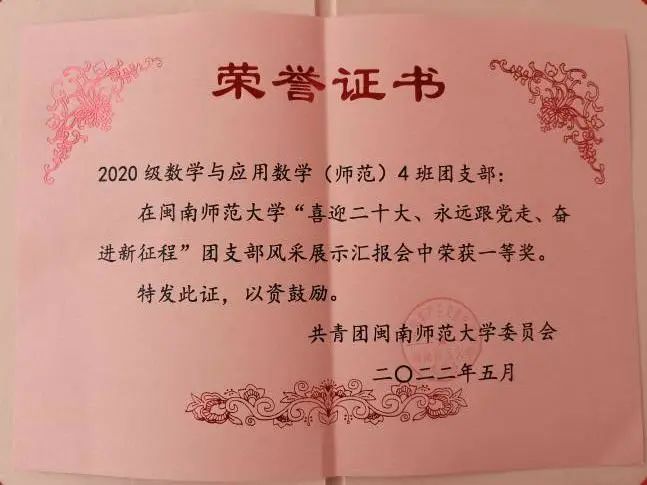 荣誉证书
2020级数学与应用数学（师范）4班团支部：
在闽南师范大学“喜迎二十大、永远跟党走、奋
进新征程”团支部风采展示汇报会中荣获一等奖。
特发此证，以资鼓励。
共青团闽南师范大学委员会
二〇二二年五月